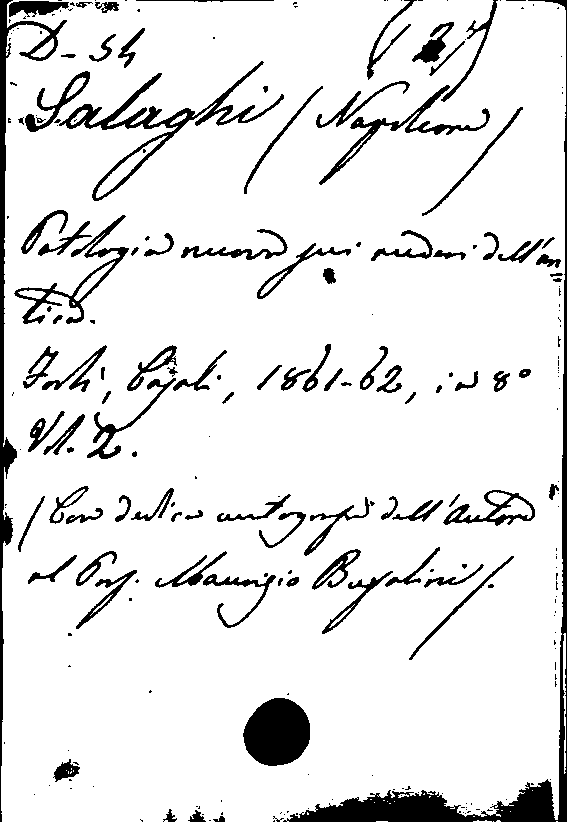 D-54 (2)
Salaghi (Napoleone)
Patologia nuova sui ruderi dell'an=
tica.
Forlì, Casali, 1861-62, in 8°
Vol. 2.
(Con dedica autografa dell'Autore
al Prof. Maurizio Bufalini).